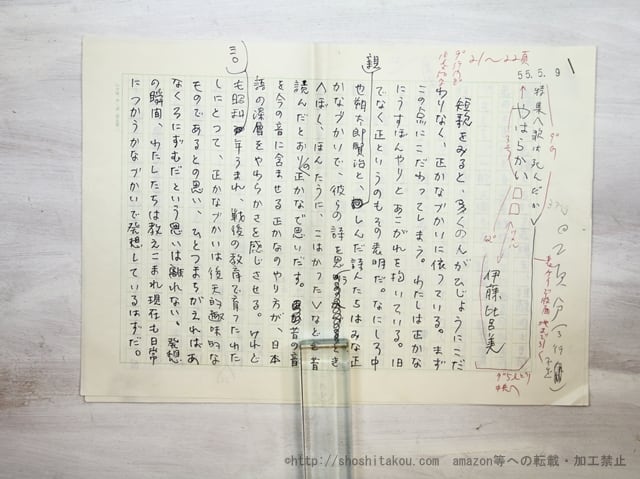 21〜22頁
55.5.9
特集〈歌は死んだか〉
やはらかい□□
伊藤比呂美
短歌をみると、多くのんがひじょうにこだ
わりなく、正かなづかいに依っている。まず
この点にこだわってしまう。わたしは正かな
にうすぼんやりとあこがれを抱いている。旧
でなく正というのもその表明だ。なにしろ中
也朔太郎賢治と、親しんだ詩人たちはみな正
かなづかいで、彼らの詩を思うとき
へぼし、ほんたうに、こはかったなどと昔
読んだとおりの正かなで思いだす。昔の音
を今の音に含ませる正かなのやり方が、日本
語の深層をやわらかさを感じさせる。けれど
も昭和三〇年うまれ、戦後の教育で育ったわた
しにとって、正かなづかいは後天的趣味的な
ものであるとの思い、ひとつまちがえればあ
なくろにずむだという思いは離れない。発想
の瞬間、わたしたちは教えこまれ現在も日常
につかうかなづかいで発想しているはずだ。
©http://shoshitakou.com amazon等への転載・加工禁止